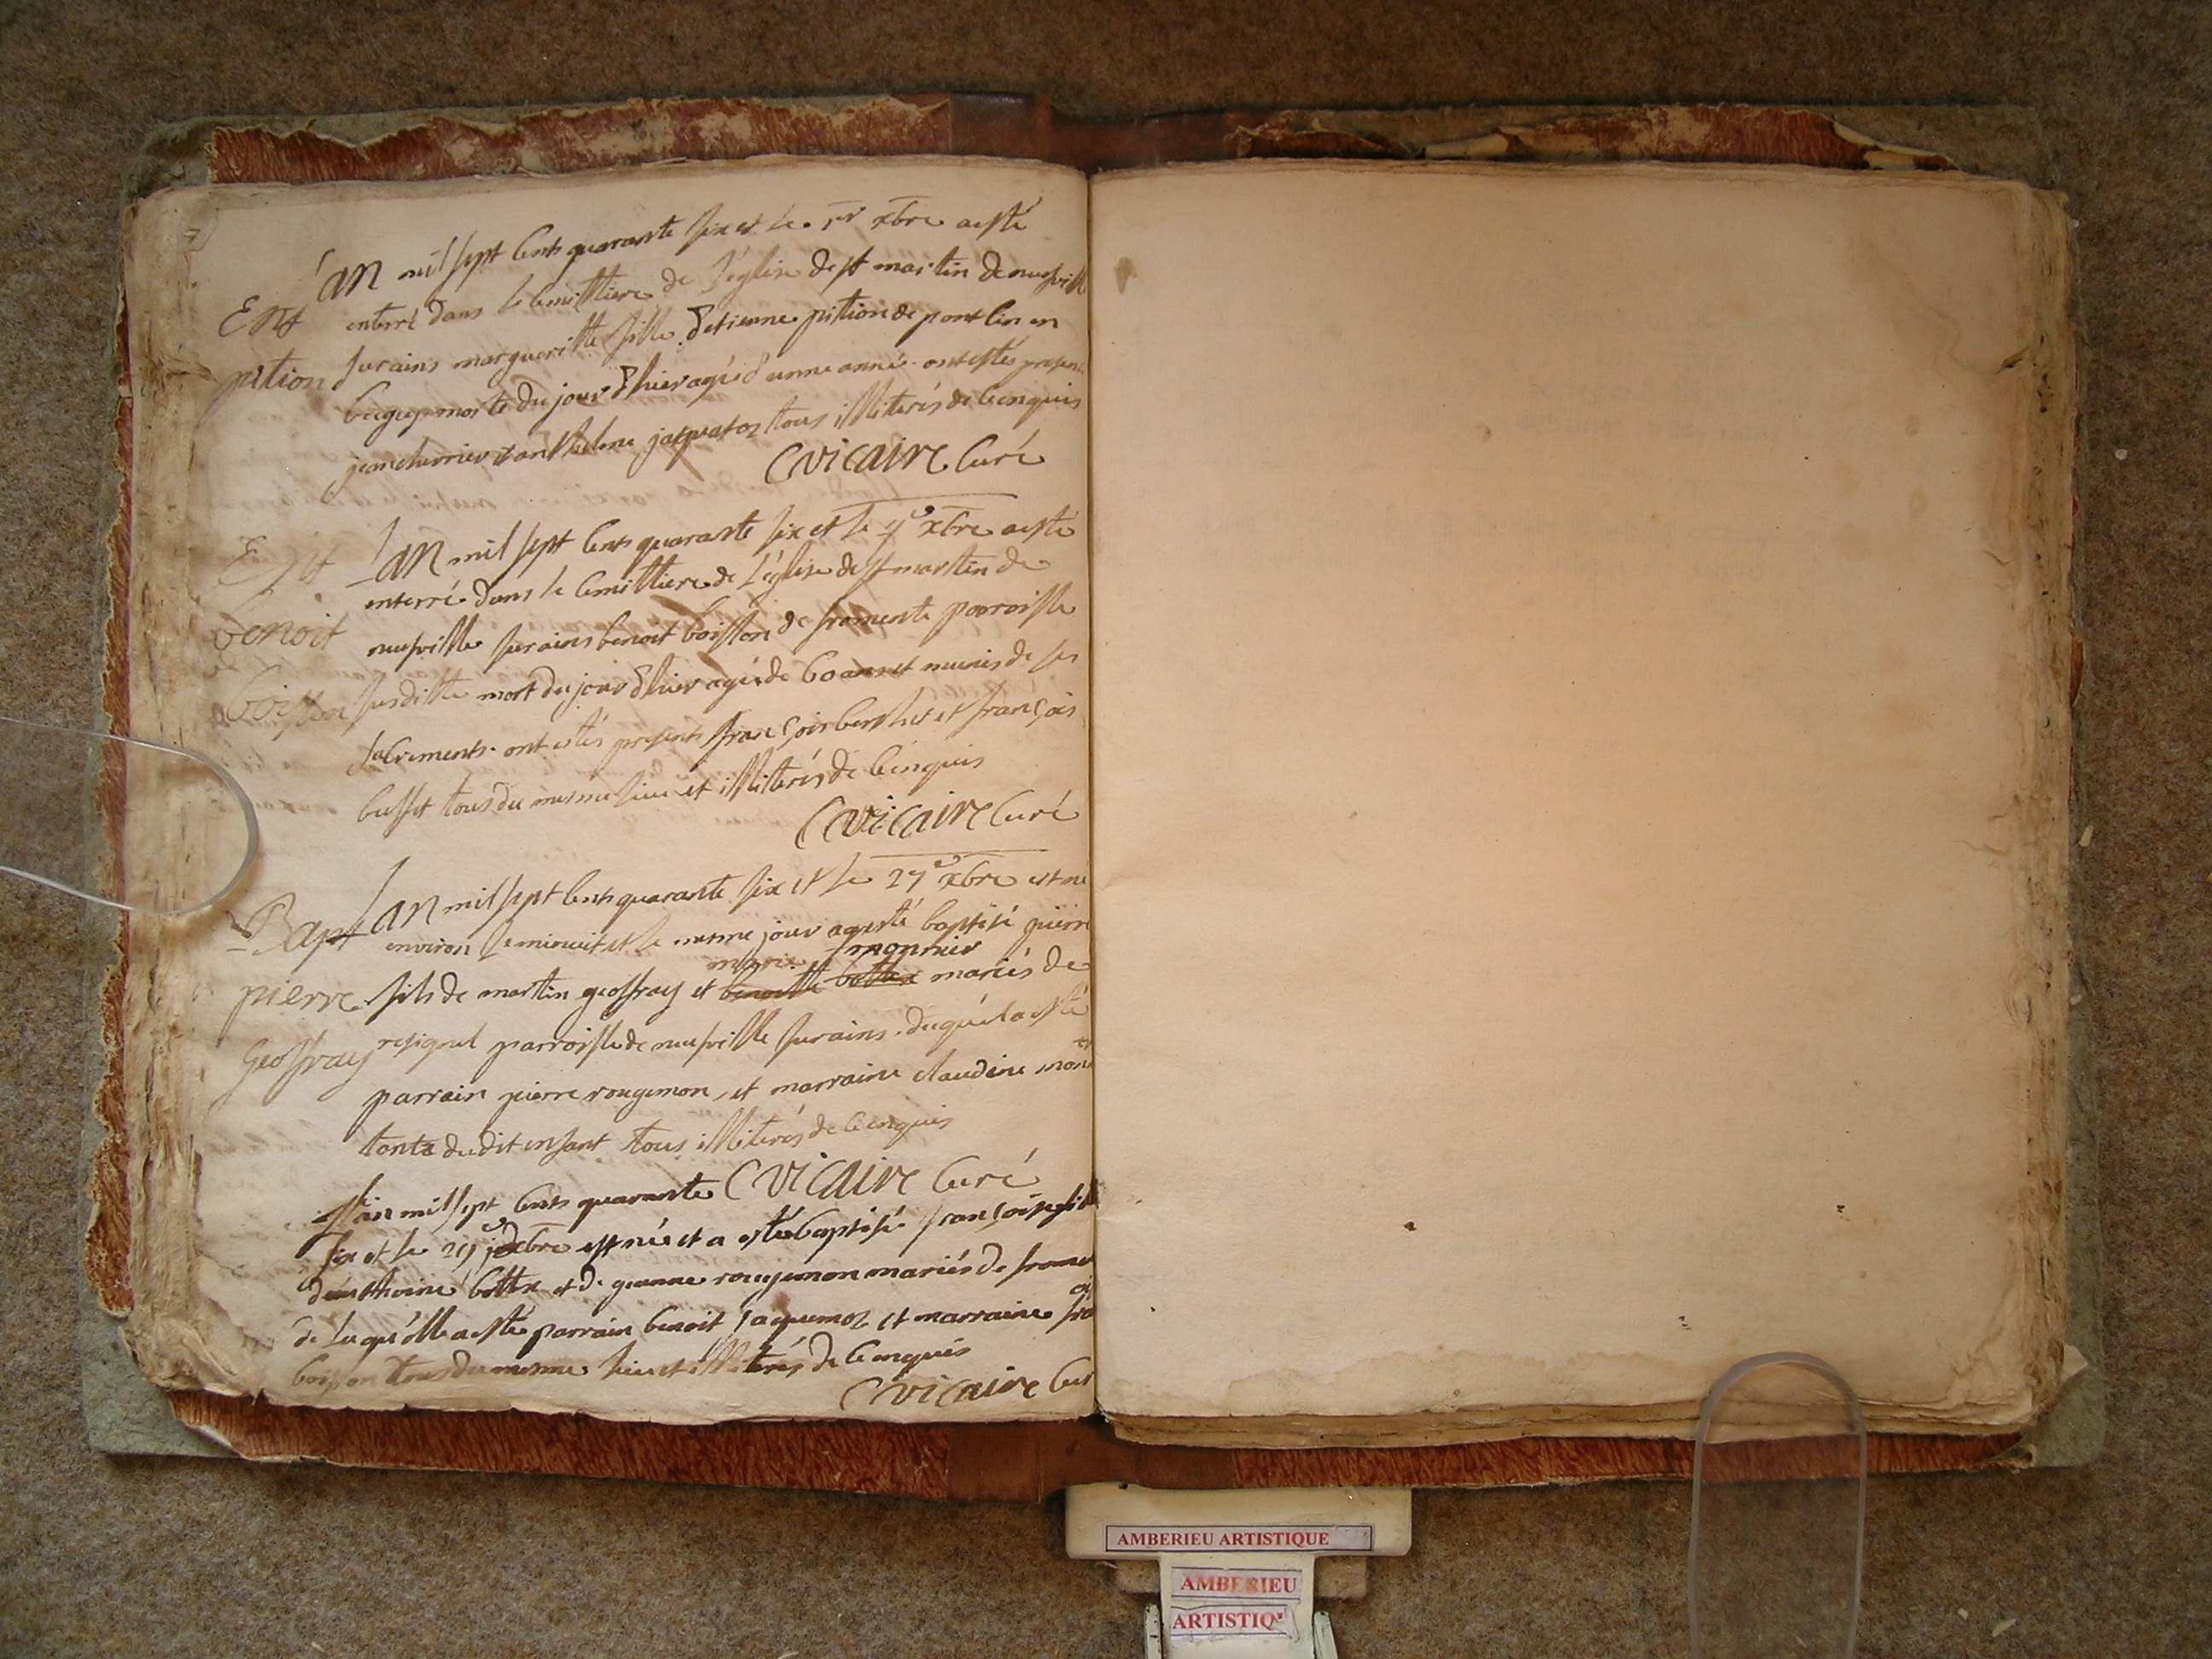 Ent
pition
l'an mil sept cents quarante six et le 1er xbre a esté
enterré dans le cemittiere de l'église de st martin de neufville
sur ains margueritte fille d'etienne pition de pont l'en en
bugey morte du jour d'hier agée d'unne année ont estés presents
jean chevrier et anthelme jaquatoz tous illiterés de ce enquis
C vicaire Curé
Ent
benoit
boisson
Lan mil sept cents quarante six et le 4e xbre a esté
enterré dans le cemittiere de l'église de st martin de
neufville sur ains benoit boisson de fromente parroisse
susditte mort du jour d'hier agé de 60 ans et munis de ses
sacrements ont estés presents françois berthet et françois
buffet tous du mesme lieu et illiterés de ce enquis
C vicaire Curé
Bapt
pierre
geoffray
Lan mil sept cents quarante six et le 27e xbre est né
environ le minuit et le mesme jour a esté baptisé pierre
marie monnier
fils de martin geoffray et benoitte bottex mariés de
resignel parroisse de neufville sur ains duquel a esté
parrain pierre rougemon et marraine claudine mon
tante du dit enfant tous illiterés de ce enquis
C vicaire Curé
l'an mil sept cents quarante
six et le 29e xbre est née et a estée baptisée françoise fille
d'anthoine bottex et de jeanne rougemon mariés de fromen
de laquelle a esté parrain benoit jaquemoz et marraine fra
boisson tous du mesme lieu et illiterés de ce enquis
C vicaire Cur
AMBERIEU ARTISTIQUE
AMBERIEU
ARTISTIQ